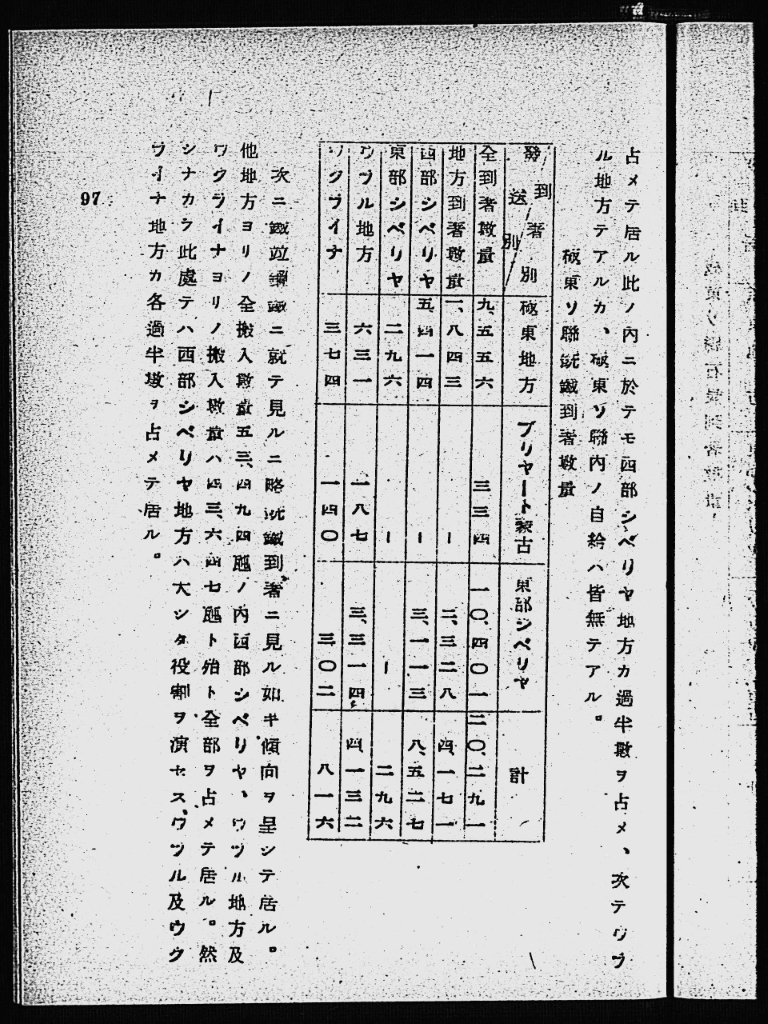 占メテ居ル此ノ內ニ於テモ西部シベリヤ地方カ過半數ヲ占メ、次テウラ
ル地方テアルカ、極東ソ聯內ノ自給ハ皆無テアル。
極東ソ聯銑鐵到著數量
發送別 到著別 極東地方 ブリヤート蒙古 東部シベリヤ 計
全到著數量 九、五五六 三三四 一〇、四〇一 二〇、二九一
地方到著數量 一、八四三 ー 二、三二八 四、一七一
西部シベリヤ 五、四一四 ー 三、一一三 八、五二七
東部シベリヤ 二九六 ー ー 二九六
ウラル地方 六三一 一八七 三、三一四 四、一三二
ウクライナ 三七四 一四〇 三〇二 八一六
次ニ鐵竝鋼鐵ニ就テ見ルニ略銑鐵到著ニ見ル如キ傾向ヲ呈シテ居ル。
他地方ヨリノ全搬入數量五三、四九四瓲ノ內西部シベリヤ、ウラル地方及
ウクライナヨリノ搬入數量ハ四三、六四七瓲ト殆ト全部ヲ占メテ居ル。然
シナカラ此處テハ西部シベリヤ地方ハ大シタ役割ヲ演セス、ウラル及ウク
ライナ地方カ各過半數ヲ占メテ居ル。
97